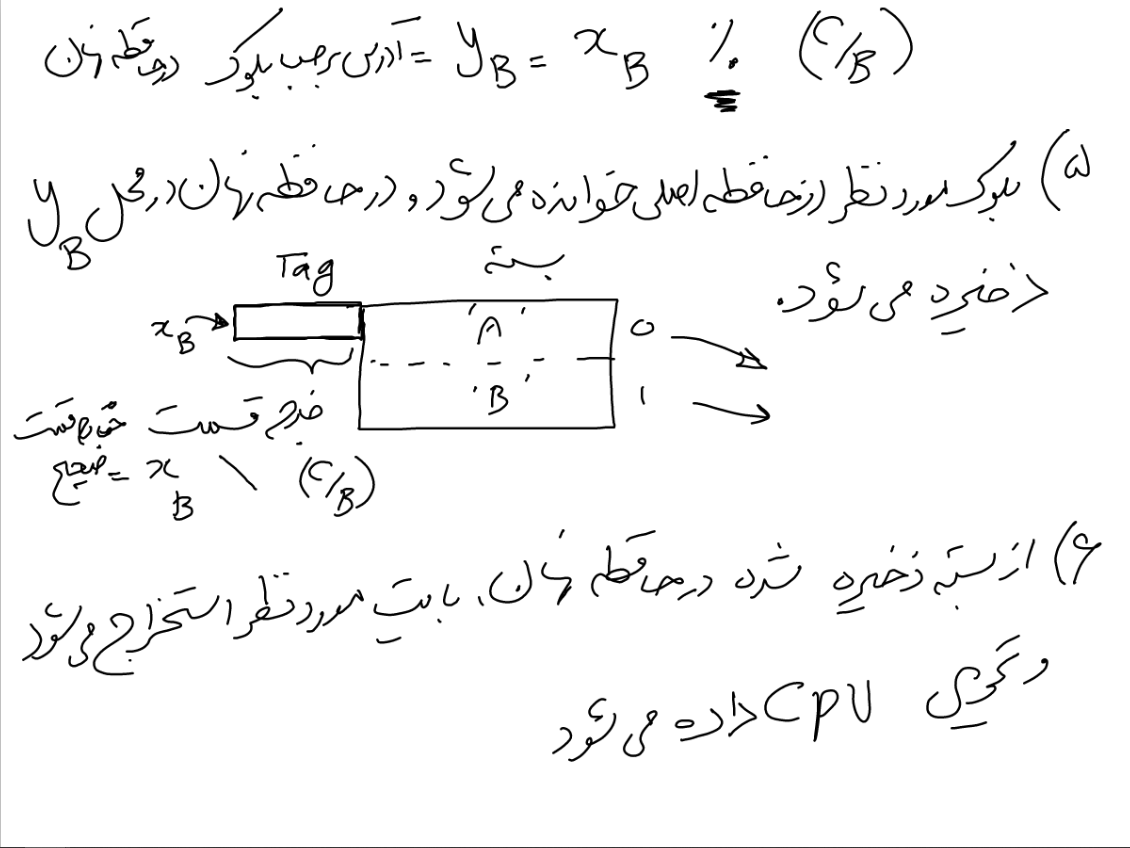 آدرس برحسب بلوک در حافظه نهان = y_B = x_B % (C/B)
۵) بلوک مورد نظر از حافظه اصلی خوانده می‌شود و در حافظه نهان در محل y_B
ذخیره می‌شود.
Tag بسته
x_B 'A' 0
'B' 1
خارج قسمت
صحیح = x_B \ (C/B)
۶) از بسته ذخیره شده در حافظه نهان، بایت مورد نظر استخراج می‌شود
و تحویل CPU داده می‌شود